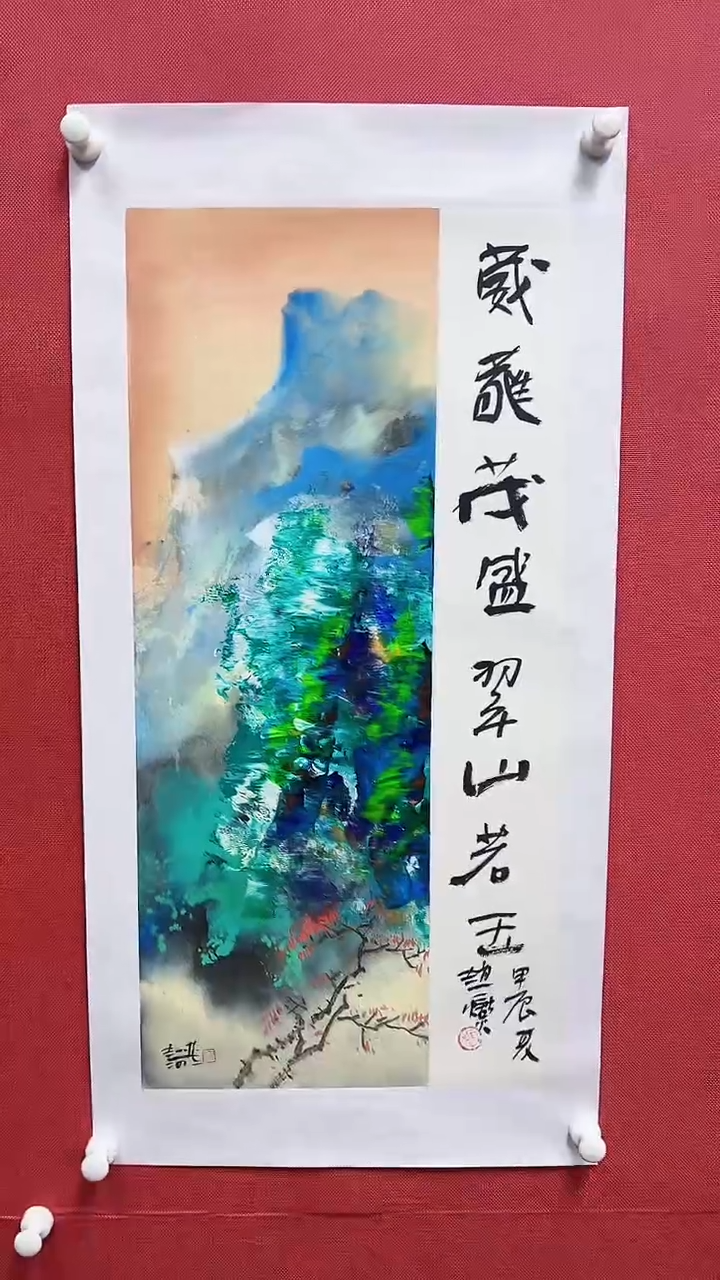 葳蕤茂盛翠山若玉
甲辰夏